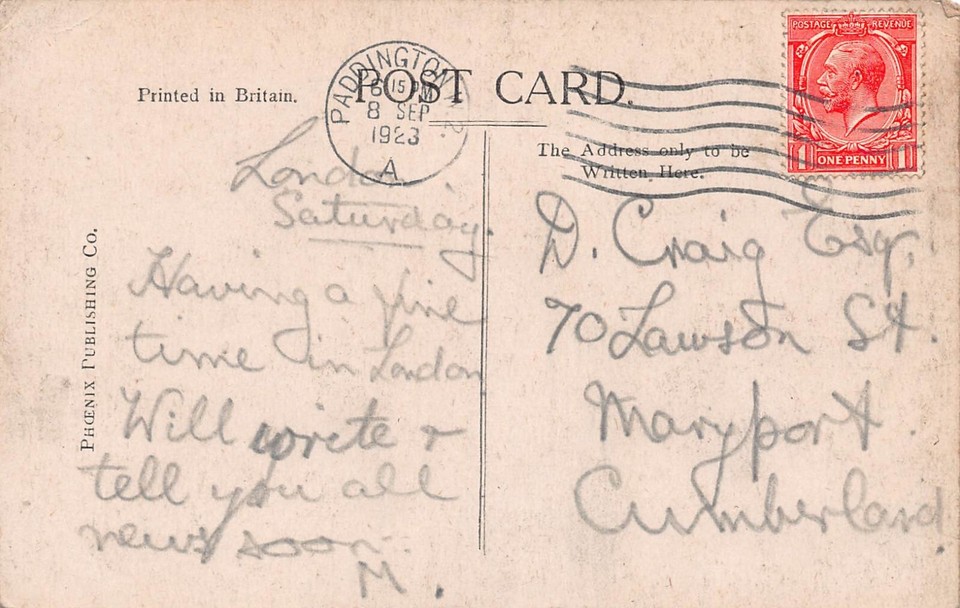 POST CARD.
Printed in Britain.
PADDINGTON
6 15 PM
8 SEP
1923
A
POSTAGE REVENUE
1 ONE PENNY 1
The Address only to be
Written Here.
PHŒNIX PUBLISHING CO.
London
Saturday.
Having a fine
time in London
Will write &
tell you all
news soon.
M.
D. Craig Esq.
70 Lawson St.
Maryport.
Cumberland.